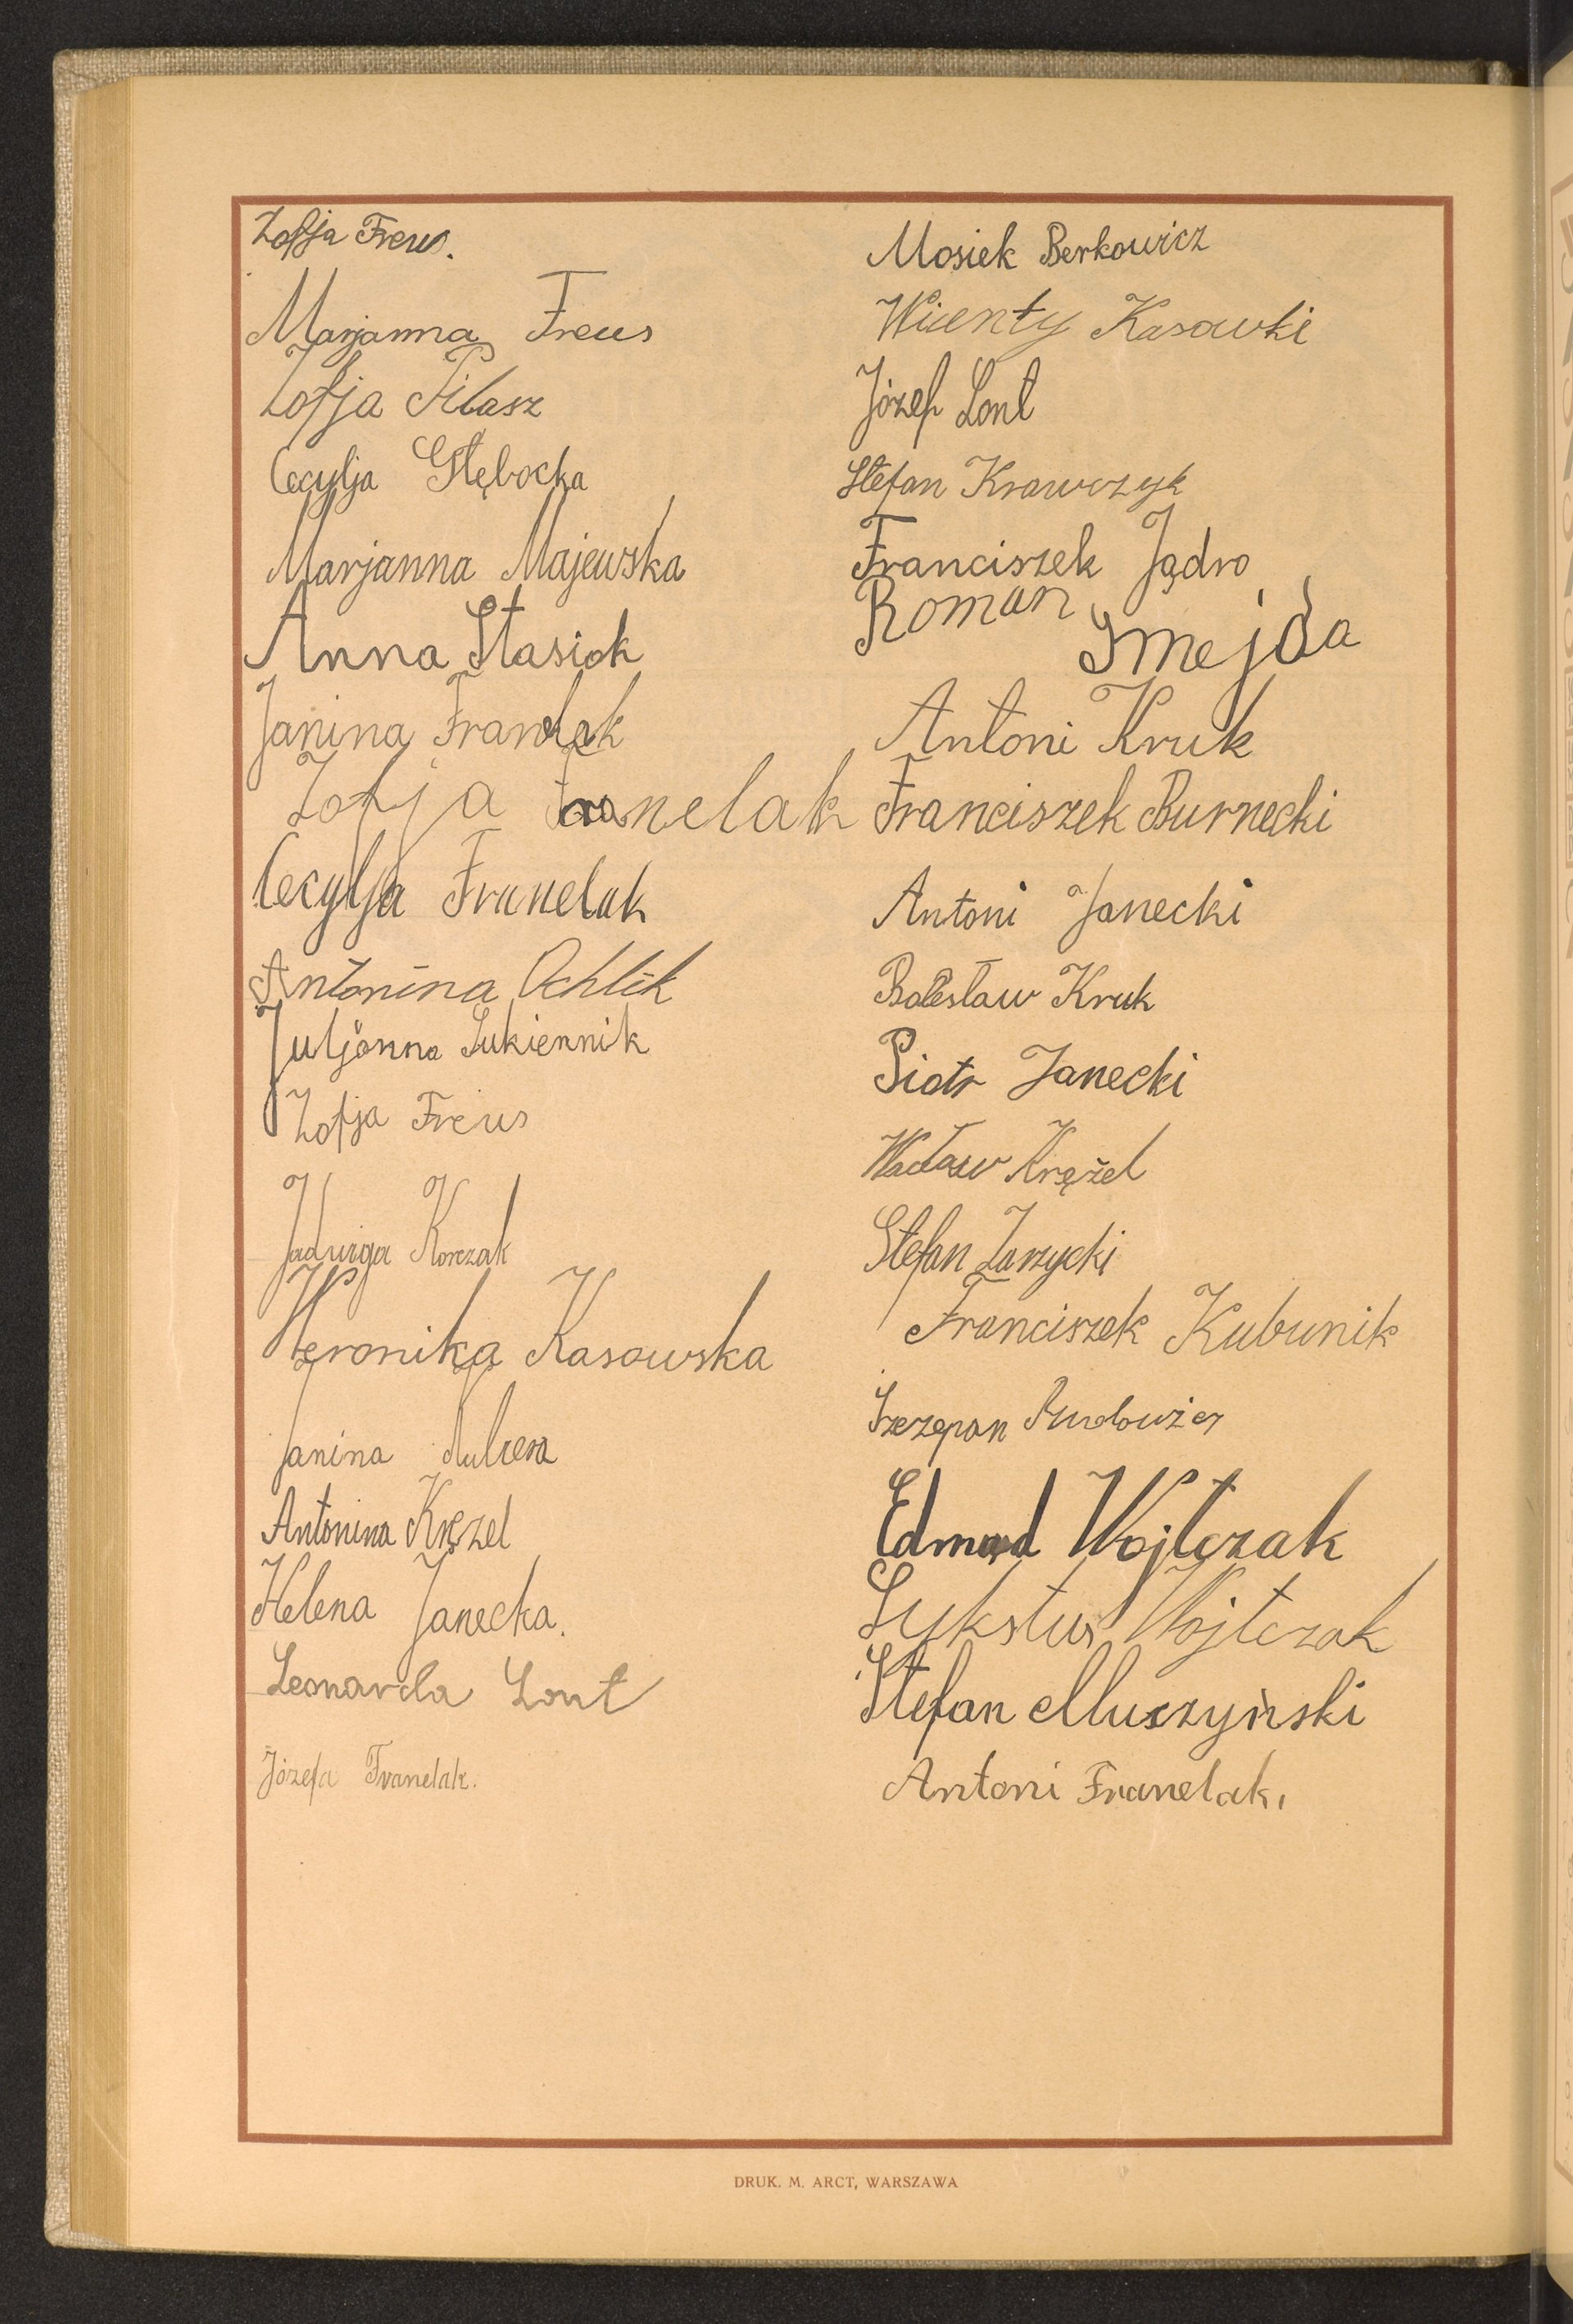 Zofja Freus.
Marjanna Freus
Zofja Pilasz
Cecylja Głębocka
Marjanna Majewska
Anna Stasiak
Janina Franelak
Zofja Franelak
Cecylja Franelak
Antonina Ochlik
Juljanna Sukiennik
Zofja Freus
Jadwiga Korczak
Weronika Kasowska
Janina
Antonina Kręzel
Helena Janecka.
Leonarda Lont
Józefa Franelak.
Mosiek Berkowicz
Wicenty Kasowki
Józef Lont
Stefan Krawczyk
Franciszek Jądro
Roman Smejda
Antoni Kruk
Franciszek Burnecki
Antoni Janecki
Bolesław Kruk
Piotr Janecki
Wacław Krężel
Stefan Zarzycki
Franciszek Kubunik
Szczepan
Edmund Wojtczak
Sykstus Wojtczak
Stefan Muszyński
Antoni Franelak.
DRUK. M. ARCT, WARSZAWA